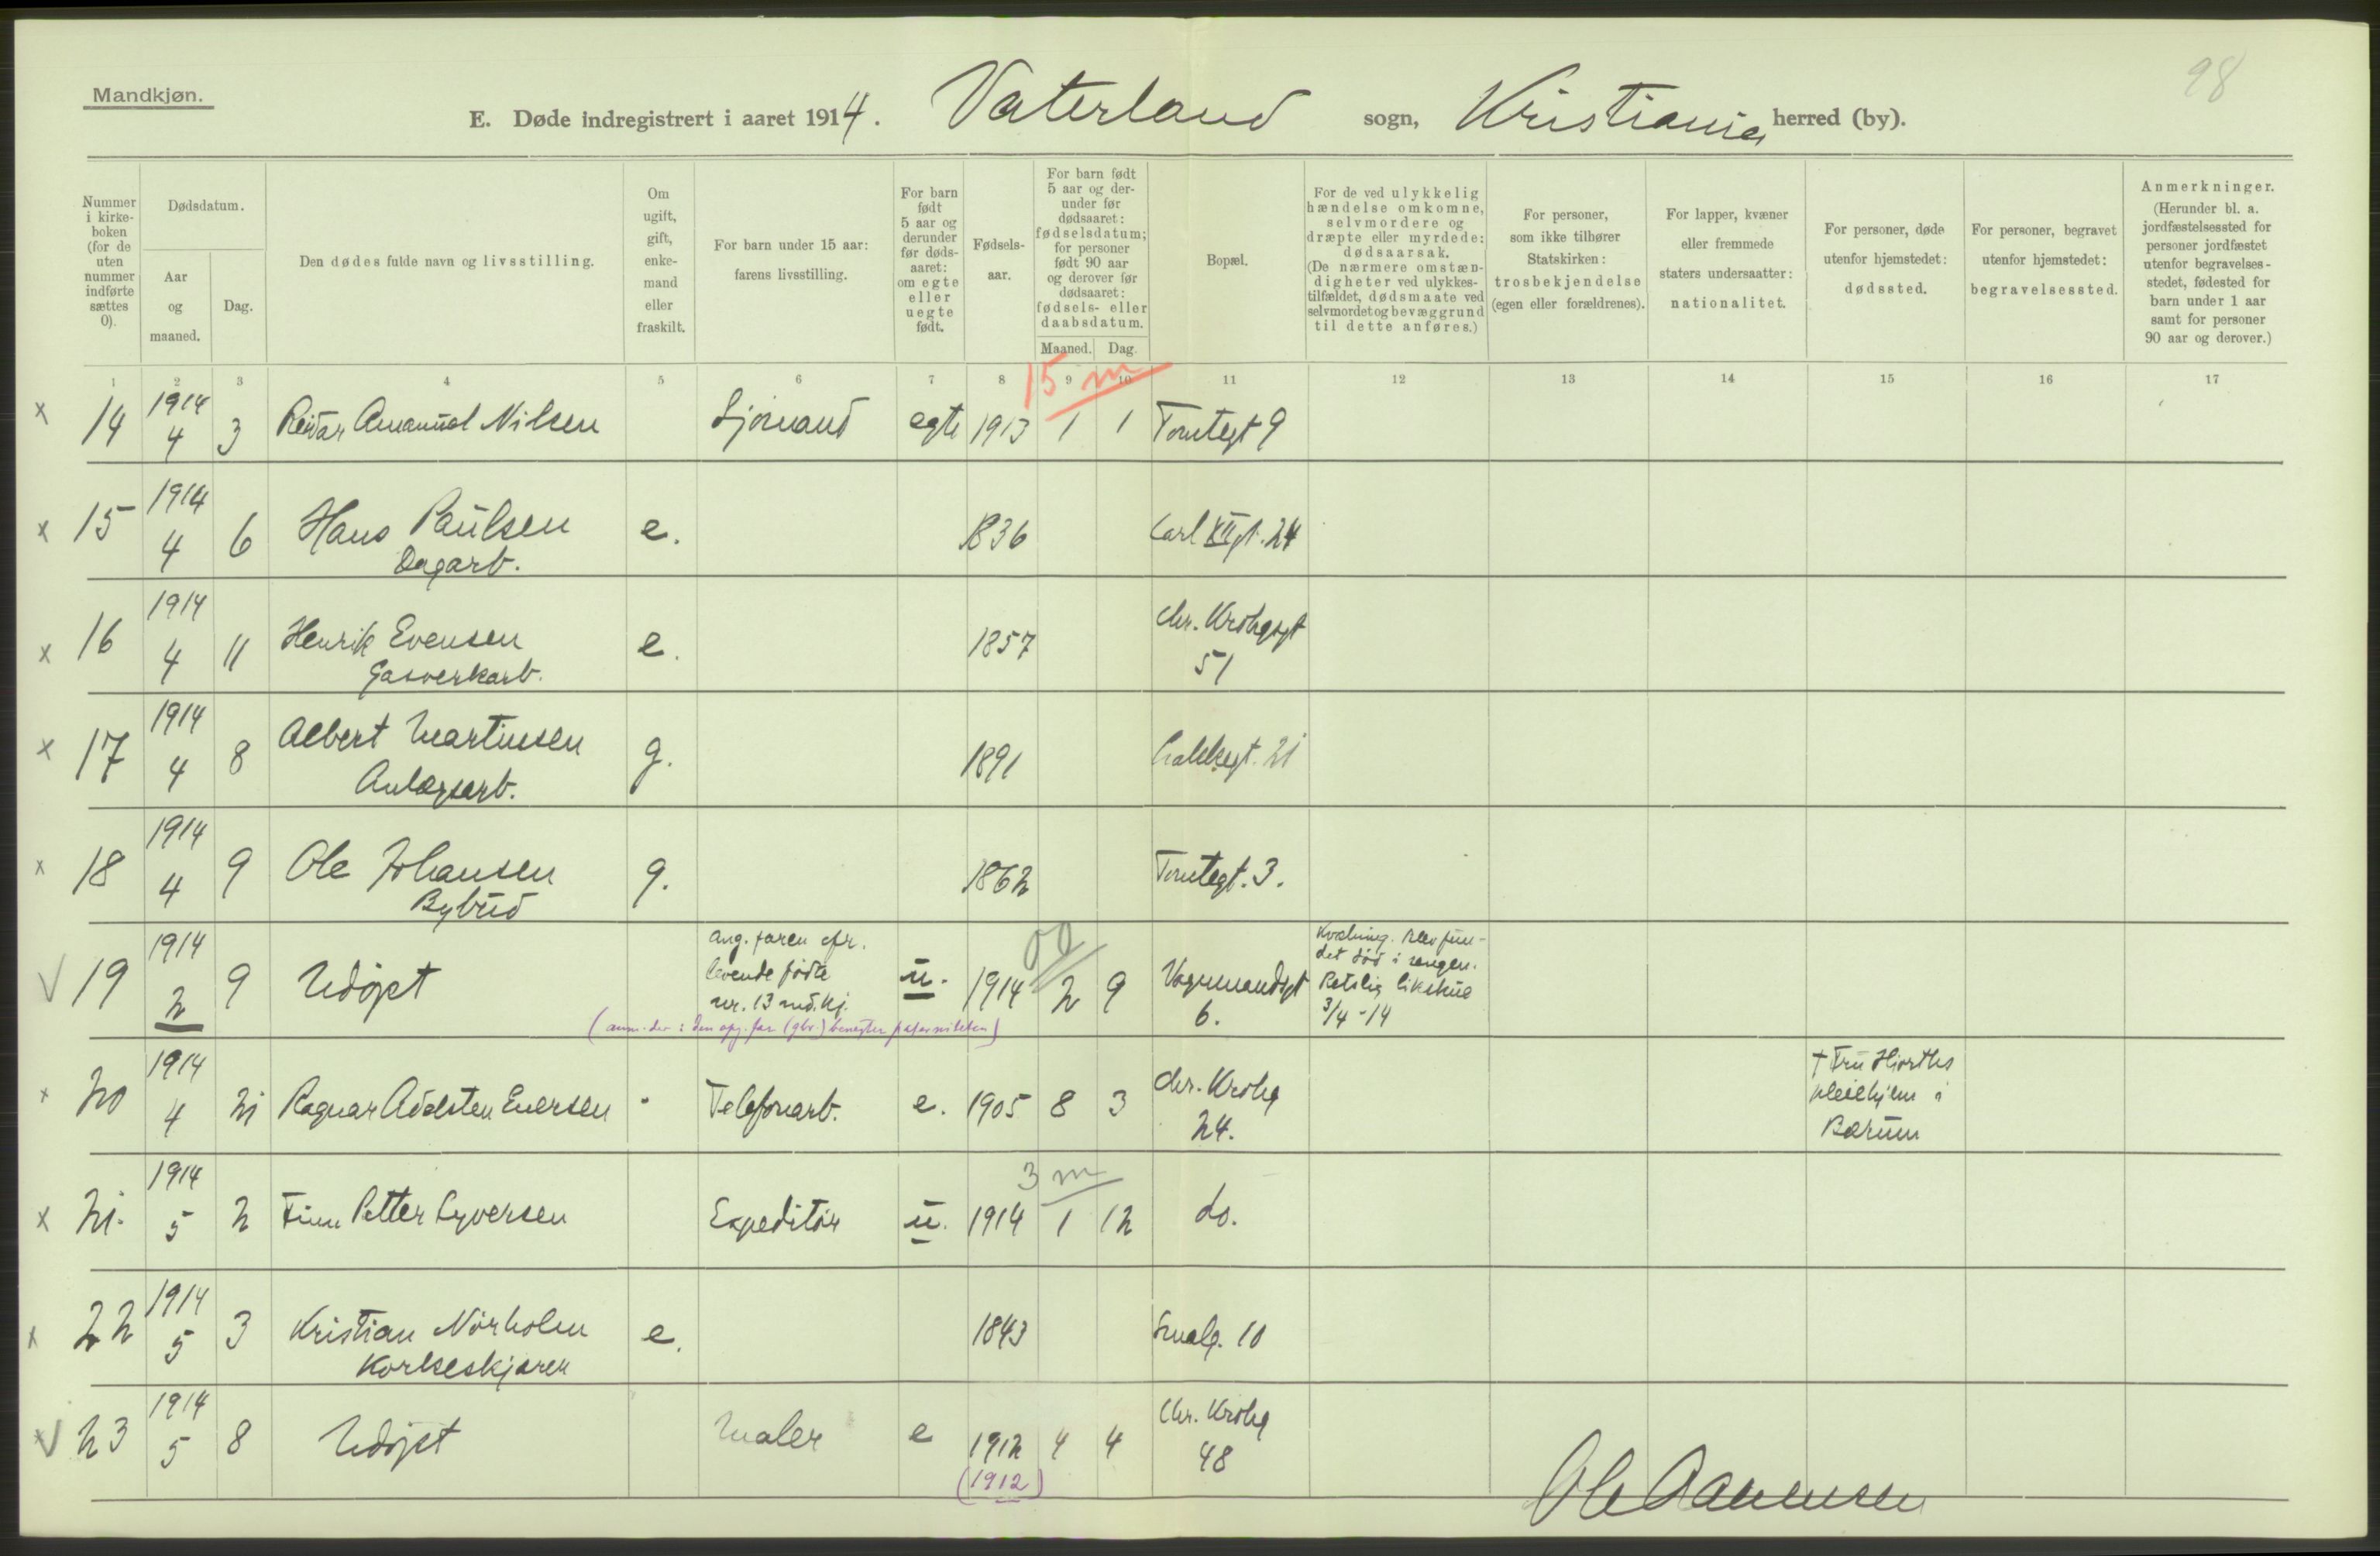 98
Mandkjøn.
E. Døde indregistrert i aaret 1914. Vaterland sogn, Kristiania herred (by).
Nummer i kirke- boken (for de uten nummer indførte sættes 0).
Dødsdatum.
Aar og maaned.
Dag.
Den dødes fulde navn og livsstilling.
Om ugift, gift, enke- mand eller fraskilt.
For barn under 15 aar: farens livsstilling.
For barn født 5 aar og derunder før døds- aaret: om egte eller uegte født.
Fødsels- aar.
For barn født 5 aar og der- under før dødsaaret: fødselsdatum; for personer født 90 aar og derover før dødsaaret: fødsels- eller daabsdatum.
Maaned. Dag.
Bopæl.
For de ved ulykkelig hændelse omkomne, selvmordere og dræpte eller myrdede: dødsaarsak. (De nærmere omstæn- digheter ved ulykkes- tilfældet, dødsmaate ved selvmordet og bevæggrund til dette anføres.)
For personer, som ikke tilhører Statskirken: trosbekjendelse (egen eller forældrenes).
For lapper, kvæner eller fremmede staters undersaatter: nationalitet.
For personer, døde utenfor hjemstedet: dødssted.
For personer, begravet utenfor hjemstedet: begravelsessted.
Anmerkninger. (Herunder bl. a. jordfæstelsessted for personer jordfæstet utenfor begravelses- stedet, fødested for barn under 1 aar samt for personer 90 aar og derover.)
1 2 3 4 5 6 7 8 9 10 11 12 13 14 15 16 17
15 m
x 14 1914 4 3 Reidar Amanuel Nilsen Sjømand egte 1913 1 1 Tomtegt 9
x 15 1914 4 6 Hans Paulsen e. 1836 Carl XII gt. 24
Dagarb.
x 16 1914 4 11 Henrik Evensen e. 1857 Chr. Krohgsgt
Gasverkarb. 51
x 17 1914 4 8 Albert Martinsen g. 1891 21
Anlægsarb.
x 18 1914 4 9 Ole Johansen g. 1862 Tomtegt. 3.
Bybud
V 19 1914 2 9 Udøpt Ang. faren cfr. levende fødte nr. 13 md.kj. u. 1914 2 9 Vognmandsgt 6. Kvælning. Blev fun- det død i sengen. Retslig likskue 3/4 - 14
x 20 1914 4 21 Ragnar Adelsten Evensen " Telefonarb. e. 1905 8 3 Chr. Krohg 24. † Fru Hjorths pleiehjem i Bærum
3 m
x 21. 1914 5 2 Finn Petter Syversen Expeditør u. 1914 1 12 do.
x 22 1914 5 3 Kristian Nörholm e. 1843 Smalg. 10
Korkeskjærer
V 23 1914 5 8 Udøpt Maler e 1912 4 4 Chr. Krohg 48
(1912)
Ole Aamunsen